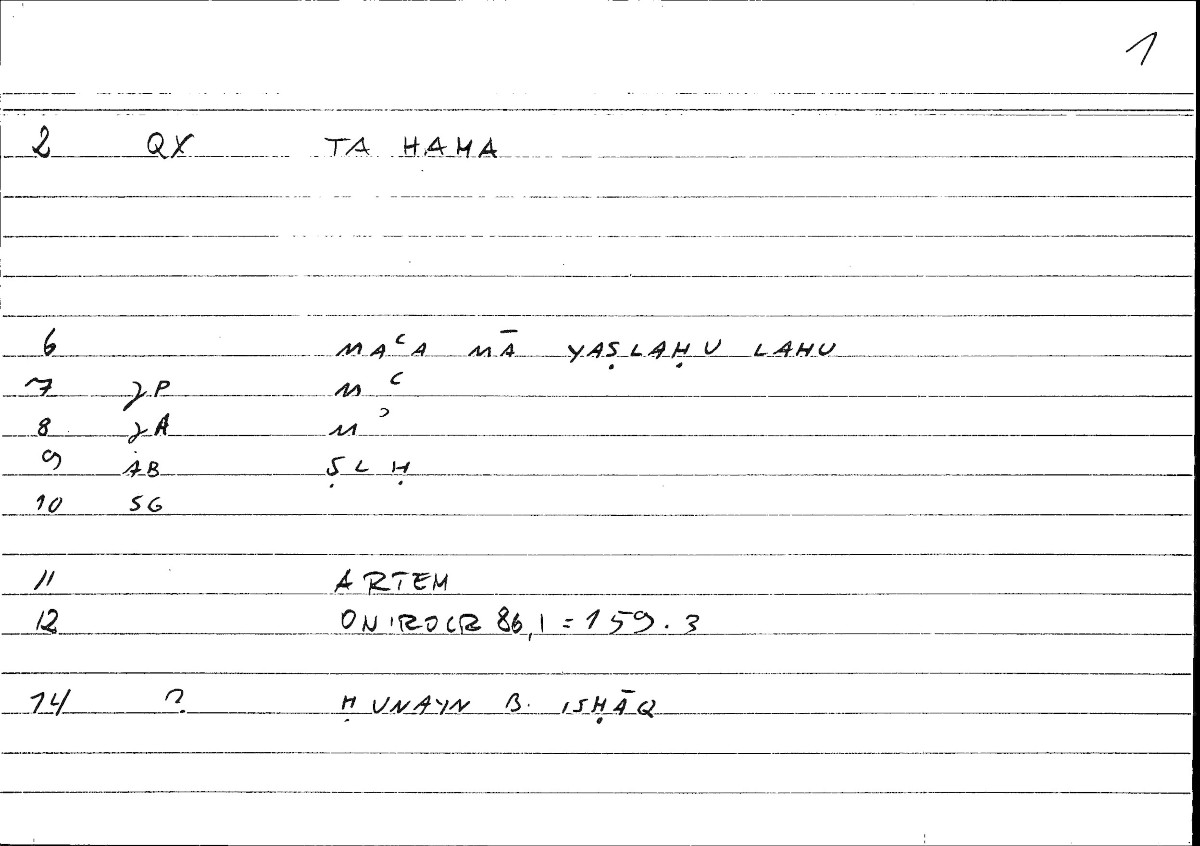 1
2 QX TA HAMA
6 MAʿA MĀ YAṢLAḤU LAHU
7 JP Mʿ
8 JA Mʾ
9 AB ṢLḤ
10 SG
11 ARTEM
12 ONIROCR 86,1 = 159.3
14 ? ḤUNAYN B. ISḤĀQ